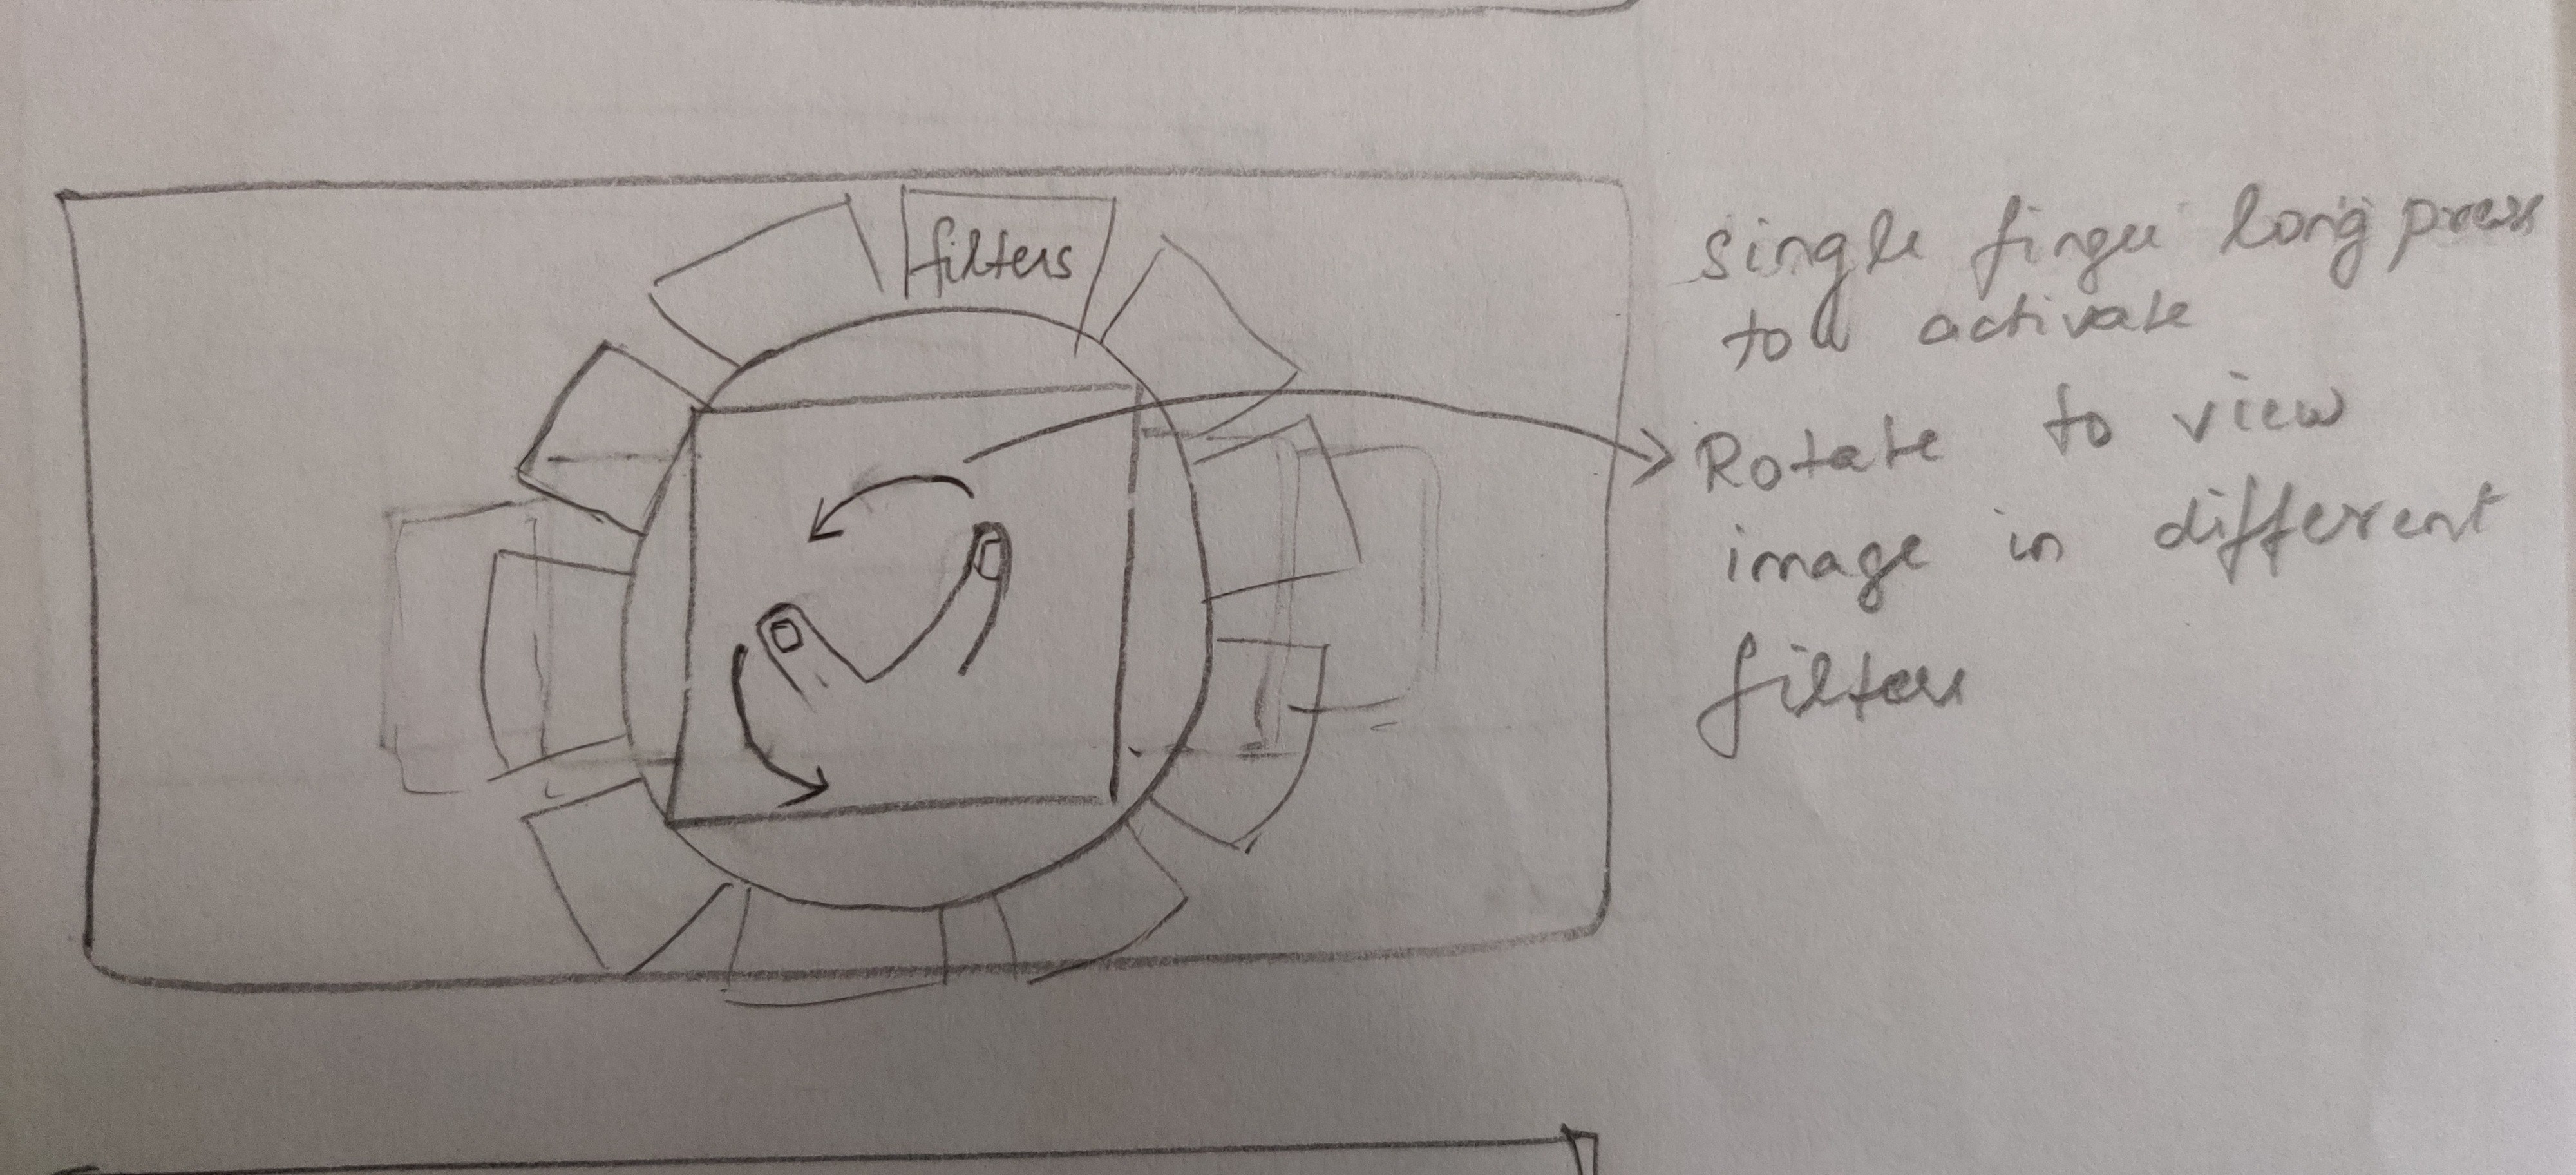 filters
single finger long press
to activate
Rotate to view
image in different
filters